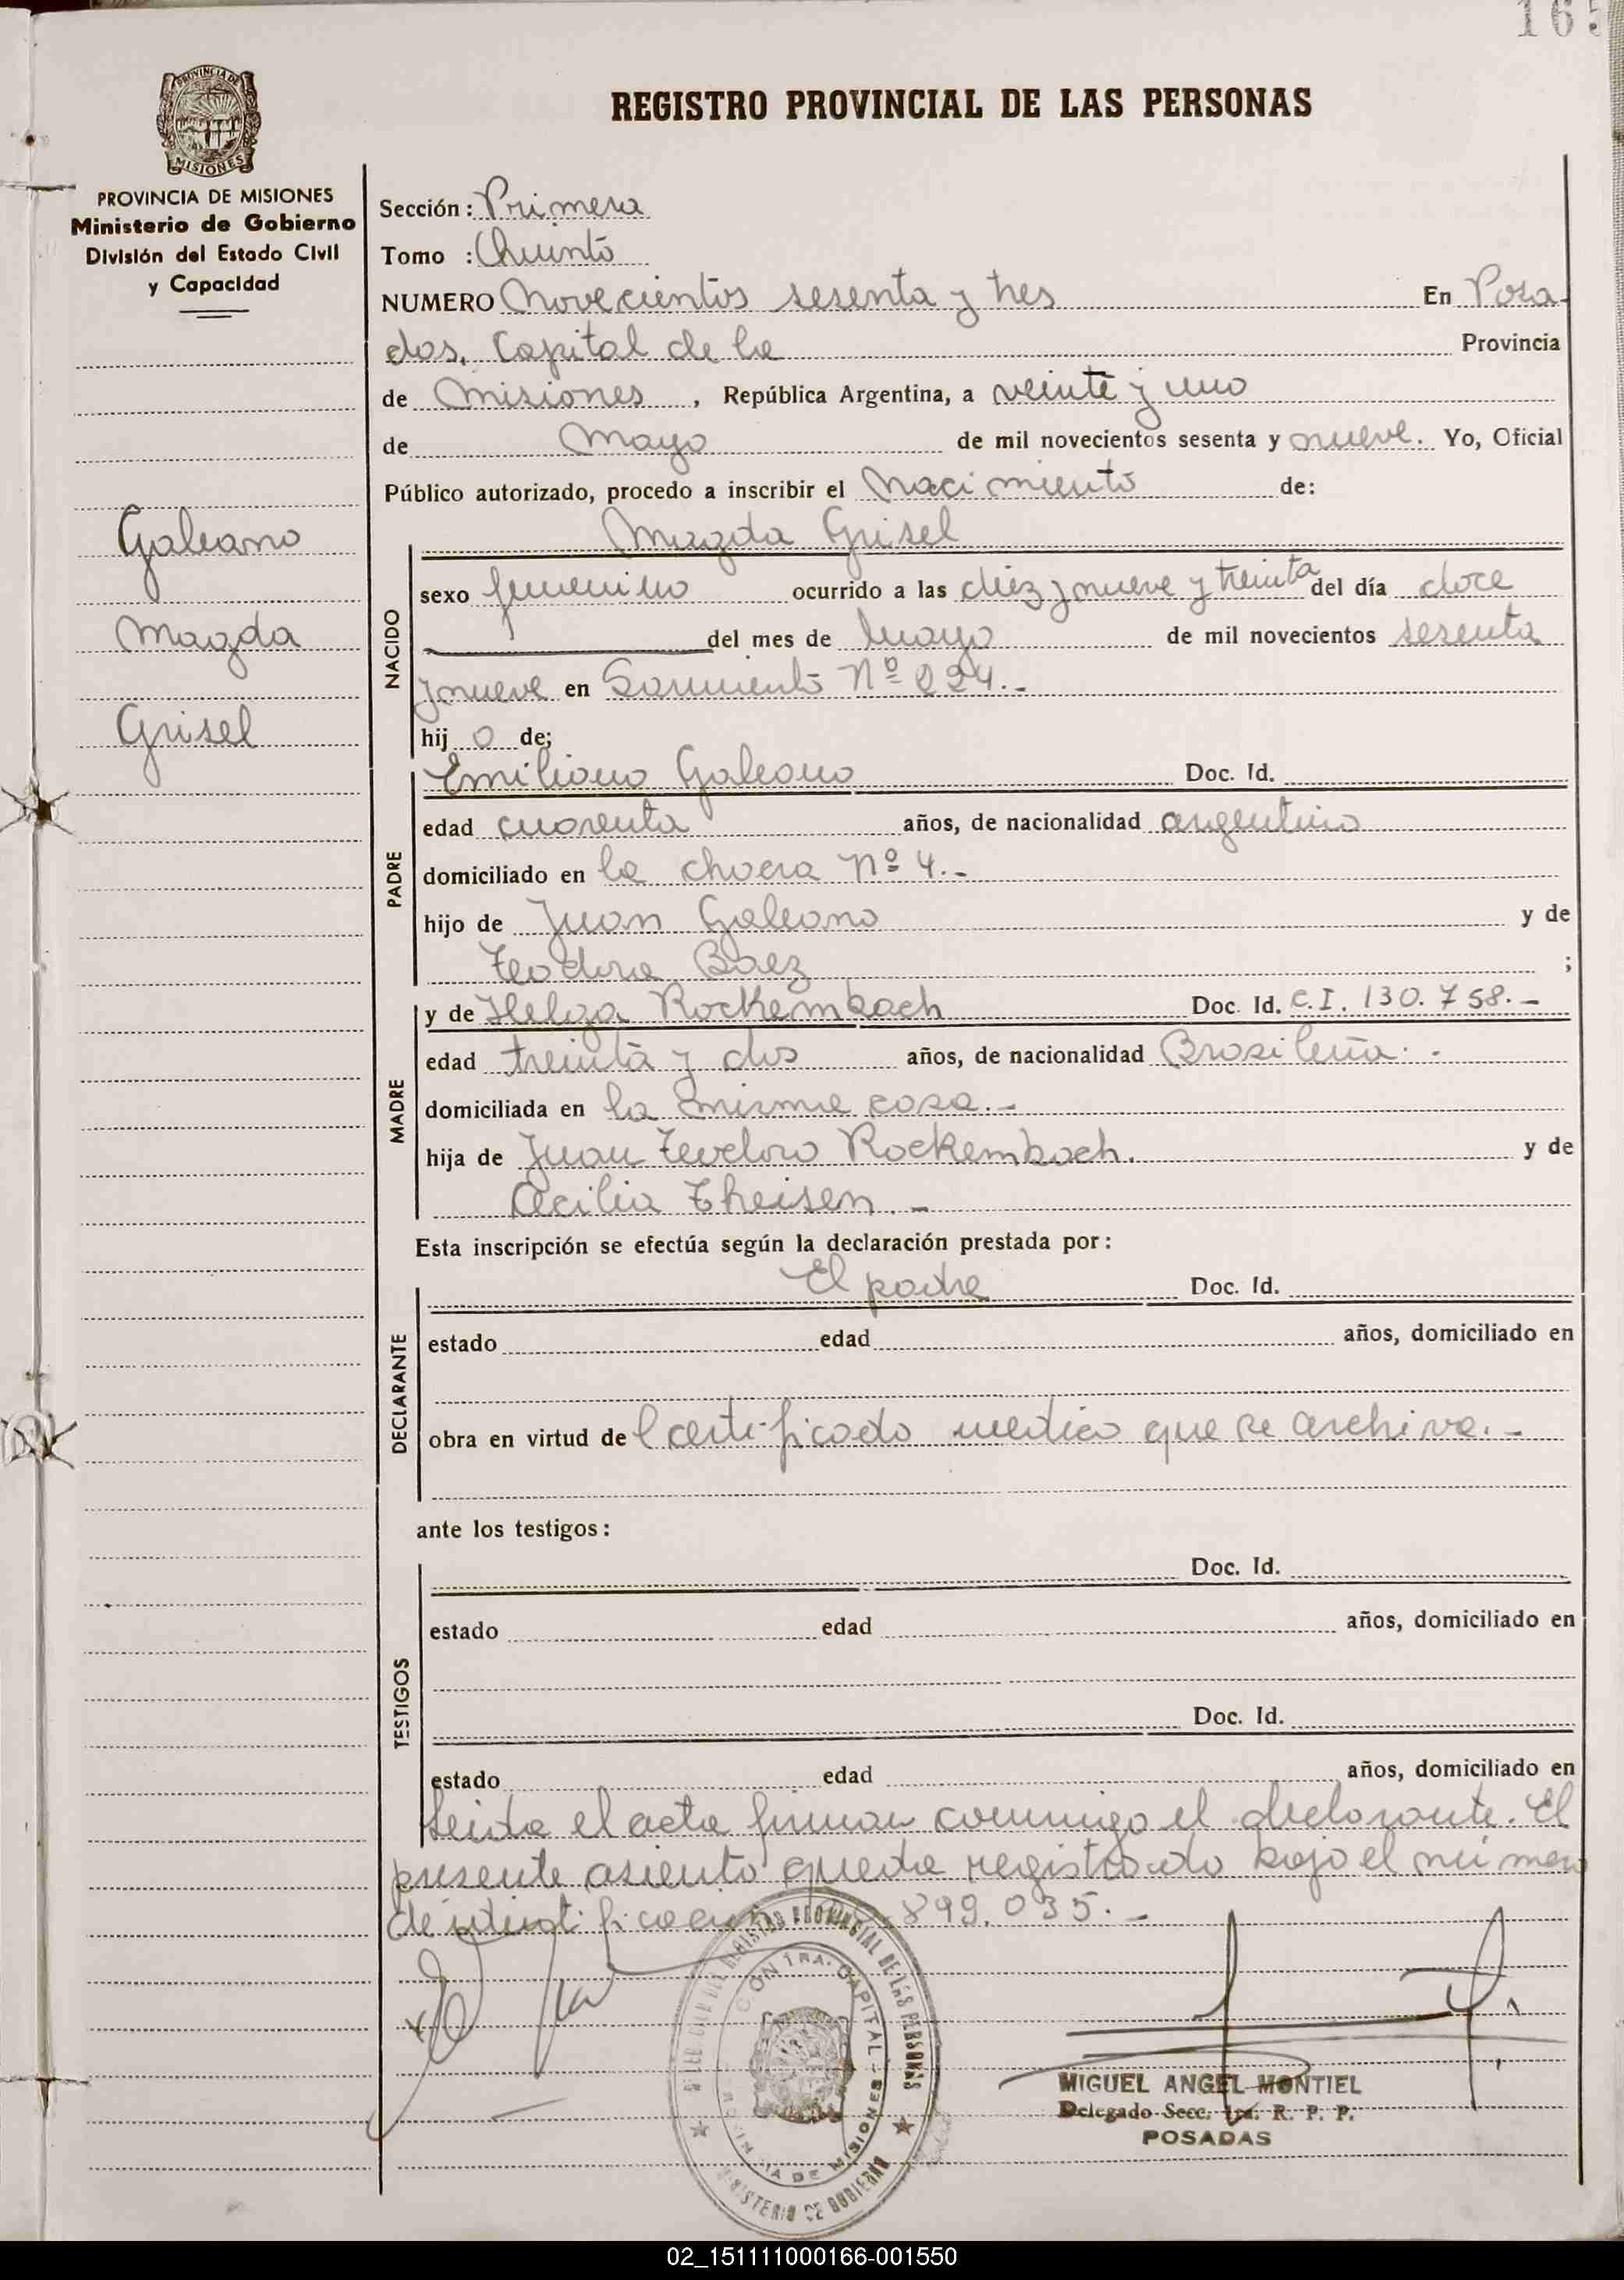 165
PROVINCIA DE
MISIONES
REGISTRO PROVINCIAL DE LAS PERSONAS
PROVINCIA DE MISIONES
Ministerio de Gobierno
División del Estado Civil
y Capacidad
Galeano
Magda
Grisel
Sección: Primera
Tomo : Quinto
NUMERO Novecientos sesenta y tres En Posa
das, Capital de la Provincia
de Misiones, República Argentina, a veinte y uno
de Mayo de mil novecientos sesenta y nueve. Yo, Oficial
Público autorizado, procedo a inscribir el Nacimiento de:
Magda Grisel
NACIDO
sexo femenino ocurrido a las diez y nueve y treinta del día doce
del mes de Mayo de mil novecientos sesenta
y nueve en Sarmiento Nº 224.-
hij o de;
PADRE
Emiliano Galeano Doc. Id.
edad cuarenta años, de nacionalidad argentino
domiciliado en la chacra Nº 4.-
hijo de Juan Galeano y de
Teodora Baez ;
MADRE
y de Helga Rockembach Doc. Id. C.I. 130.758.-
edad treinta y dos años, de nacionalidad Brasileña.-
domiciliada en la misma casa.-
hija de Juan Teodoro Rockembach. y de
Cecilia Theisen.-
Esta inscripción se efectúa según la declaración prestada por:
DECLARANTE
El padre Doc. Id.
estado edad años, domiciliado en
obra en virtud del certificado medico que se archiva.-
ante los testigos:
TESTIGOS
Doc. Id.
estado edad años, domiciliado en
Doc. Id.
estado edad años, domiciliado en
Leida el acta firman conmigo el declarante. El
presente asiento queda registrado bajo el número
de identificación 899.035.-
REGISTRO PROVINCIAL DE LAS PERSONAS
1RA. CAPITAL
PROVINCIA DE MISIONES
MINISTERIO DE GOBIERNO
MIGUEL ANGEL MONTIEL
Delegado Secc. 1ra. R. P. P.
POSADAS
02_151111000166-001550